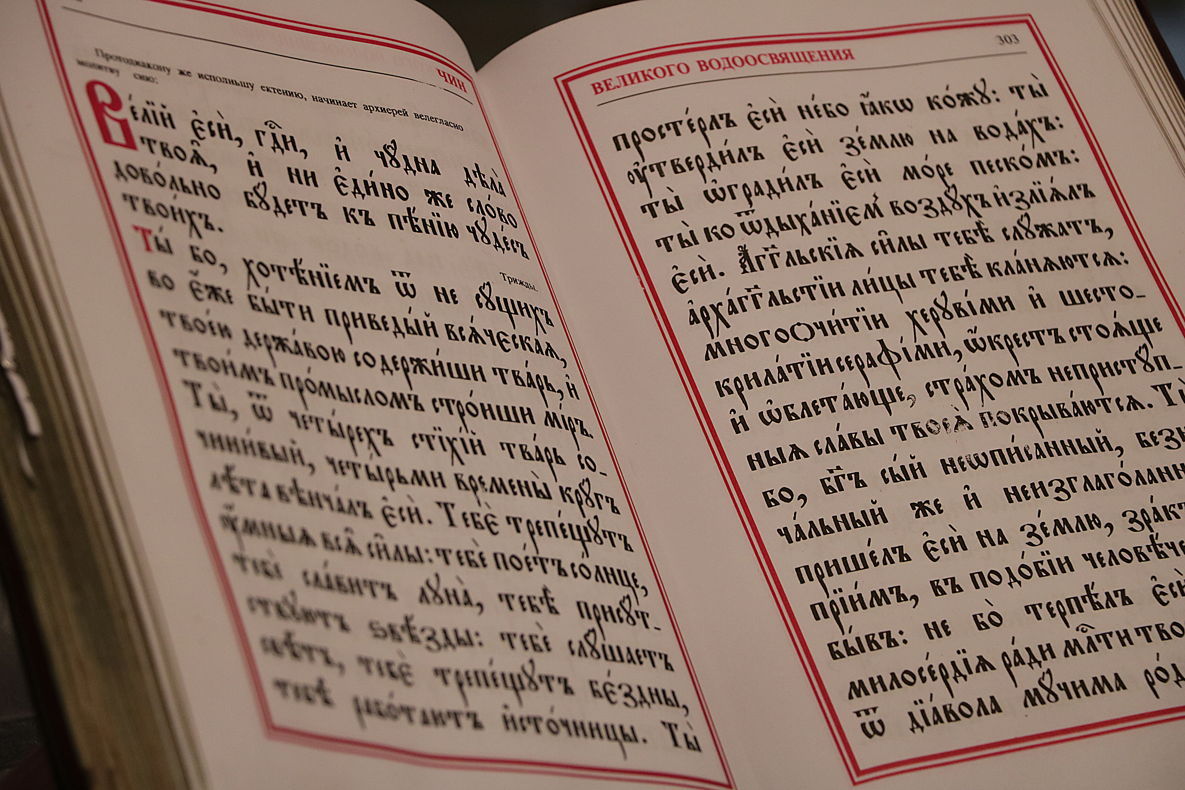 ЧИН
Протодиакону же исполньшу ектению, начинает архиерей велегласно
молитву сию:
Ве́лїй є҆сѝ, гдⷭ҇и, и҆ чꙋ́дна дѣла̀
твоѧ̑, и҆ ни є҆ди́но же сло́во
дово́льно бꙋ́детъ къ пѣ́нїю чꙋде́съ
твои́хъ.
Трижды.
Ты́ бо, хотѣ́нїемъ ѿ не сꙋ́щихъ
во є҆́же бы́ти приведы́й всѧ́ческаѧ,
твое́ю держа́вою содержи́ши тва́рь, и҆
твои́мъ про́мысломъ стро́иши мі́ръ.
Ты̀, ѿ четы́рехъ стїхі́й тва́рь со-
чини́вый, четы́рьми времены̀ крꙋ́гъ
лѣ́та вѣнча́лъ є҆сѝ. Тебѐ трепе́щꙋтъ
ᲂу҆́мныѧ всѧ̑ си̑лы: тебѐ пое́тъ со́лнце,
тебѐ сла́витъ лꙋна̀, тебѣ̀ присꙋ́т-
ствꙋютъ ѕвѣ́зды: тебѐ слꙋ́шаетъ
свѣ́тъ, тебѐ трепе́щꙋтъ бє́здны,
тебѣ̀ рабо́таютъ и҆сто́чницы. Ты̀
ВЕЛИКОГО ВОДООСВЯЩЕНИЯ 303
просте́рлъ є҆сѝ не́бо ꙗ҆́кѡ ко́жꙋ: ты̀
ᲂу҆тверди́лъ є҆сѝ зе́млю на вода́хъ:
ты̀ ѡ҆гради́лъ є҆сѝ мо́ре песко́мъ:
ты̀ ко ѿдыха́нїємъ во́здꙋхъ и҆злїѧ́лъ
є҆сѝ. А҆́гг҃льскїѧ си̑лы тебѣ̀ слꙋ́жатъ,
а҆рха́гг҃льстїи ли́цы тебѣ̀ кла́нѧютсѧ:
многоꙮчи́тїи херꙋві́ми и҆ шесто-
крила́тїи серафі́ми, ѡ҆́крестъ стоѧ́ще
и҆ ѡ҆блета́юще, стра́хомъ непристꙋ́п-
ныѧ сла́вы твоеѧ̀ покрыва́ютсѧ. Ты̀
бо, бг҃ъ сы́й неѡпи́санный,
ча́льный же и҆
прише́лъ є҆сѝ на зе́млю,
прїи́мъ, въ подо́бїи
бы́въ: не бо̀ терпѣ́лъ є҆сѝ
милосе́рдїѧ ра́ди млⷭ҇ти
ѿ дїа́вола мꙋ́чима